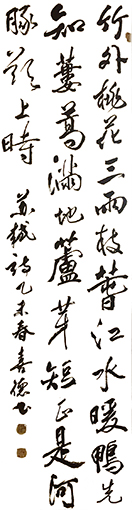 竹外桃花三兩枝春江水暖鴨先
知蔞蒿滿地蘆芽短正是河
豚欲上時
蘇軾詩乙未春喜德书